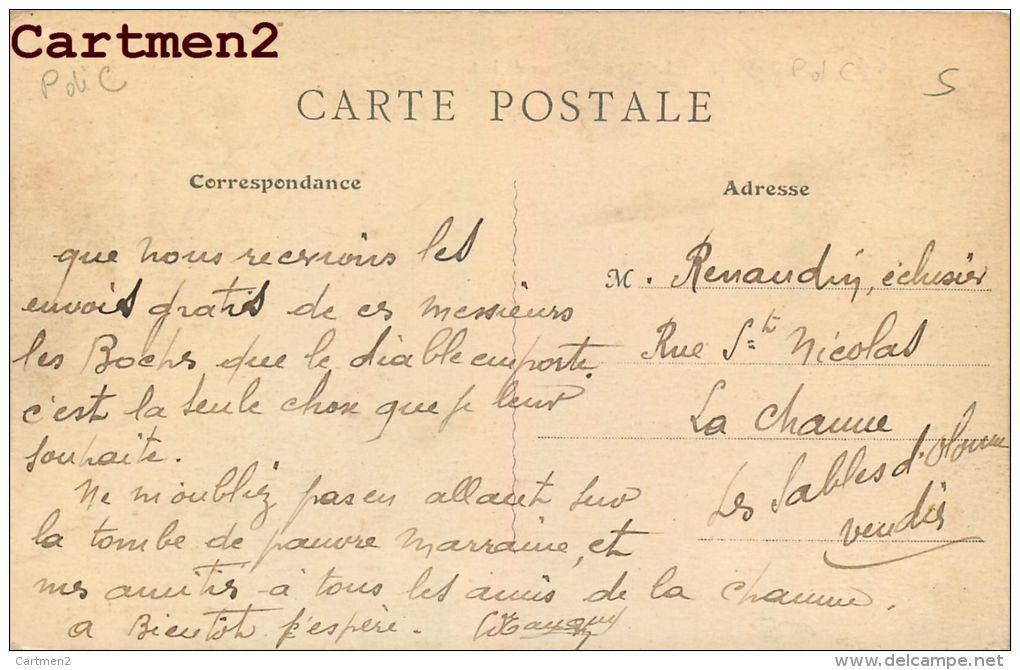 Cartmen2
Poli C
Pol C
S
CARTE POSTALE
Correspondance
Adresse
que nous recevions les
envois gratis de ces messieurs
les Boches que le diable emporte.
c'est la seule chose que je leur
souhaite.
Ne m'oubliez pas en allant sur
la tombe de pauvre Marraine, et
mes amitiés à tous les amis de la chaume.
a Bientôt j'espère.
M. Renaudin, éclusier
Rue St Nicolas
La Chaume
Les Sables d'Olonne
Vendée
Cartmen2
delcampe.net